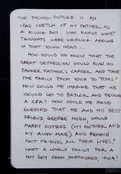 THE FACING PICTURE IS AN
SKETCH OF MY FATHER AS
A YOUNG BOY. I WONDER WHAT
THOUGHTS WERE WHIRLING AROUND
IN THAT YOUNG HEAD...
HOW COULD HE KNOW THAT THE
GREAT DEPRESSION WOULD RUIN HIS
FATHER'S CAREER, AND TAKE
THE FAMILY FROM IOWA TO
HOW COULD HE IMAGINE THAT HE
WOULD GO TO BAYLOR, AND BECOME
A CPA? HOW COULD HE HAVE
GUESSED THAT HE AND HIS BEST
FRIEND GEORGE WOULD
MARRY SISTERS (MY MOTHER AND
MY AUNT) AND REMAIN
FAST FRIENDS ALL THEIR LIVES?
WHAT A LOVELY FACE, THIS
BOY FROM IOWA!